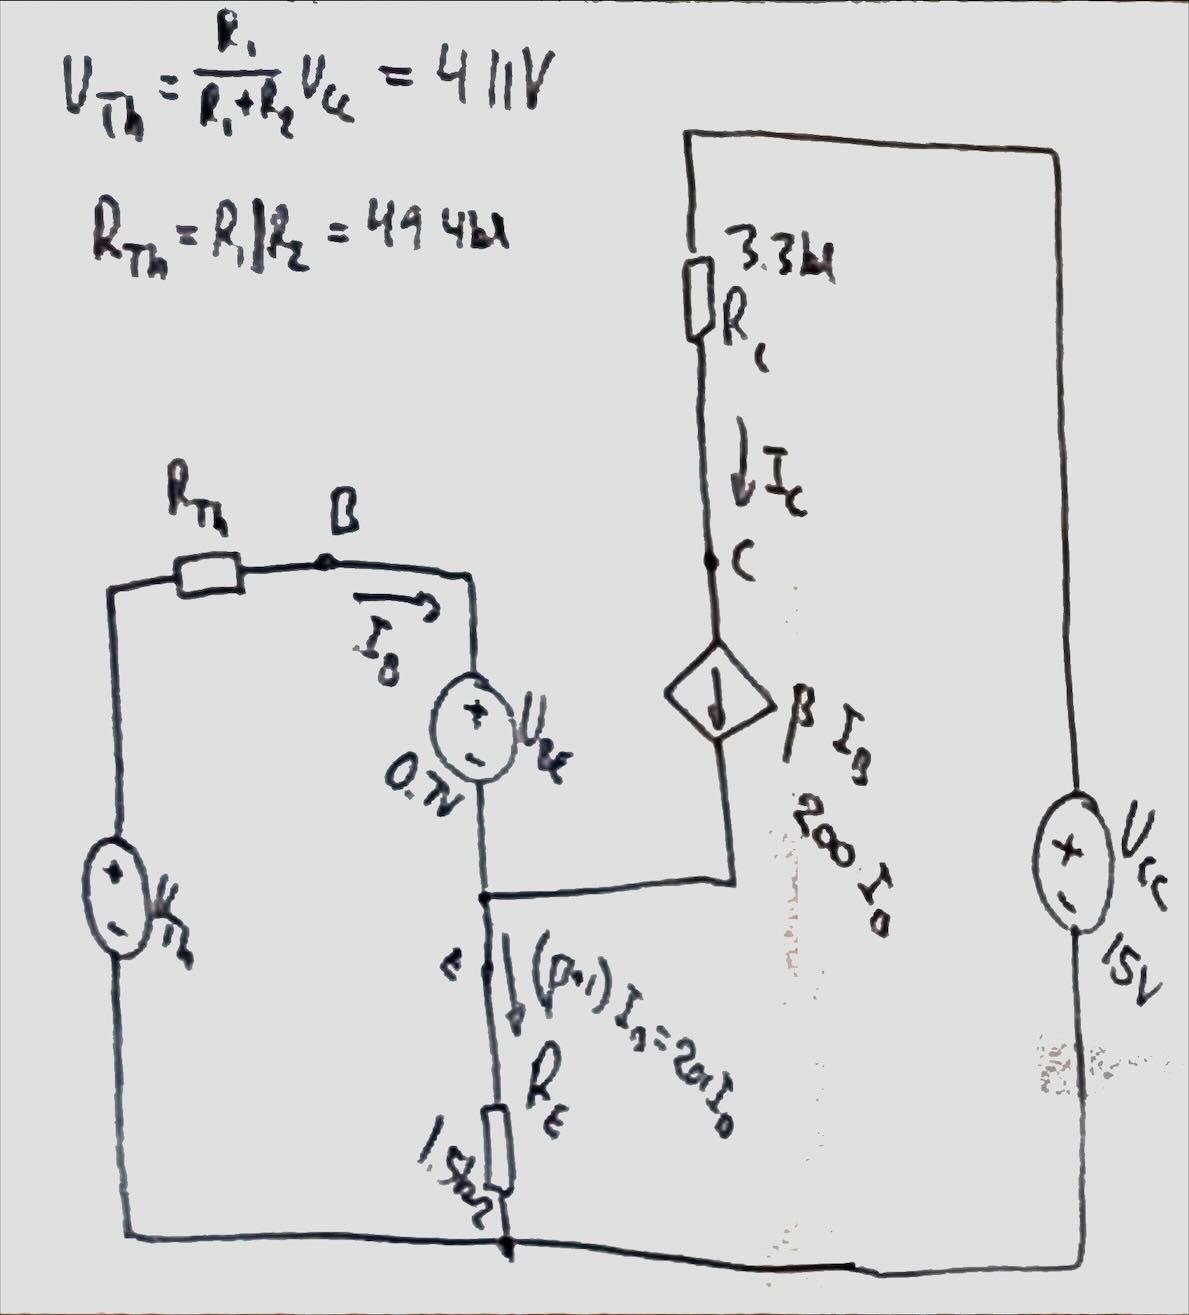 U_Th = R₁/(R₁+R₂) U_CC = 4 11V
R_Th = R₁||R₂ = 49 4kΩ
3.3kΩ
R_C
I_C
C
R_Th
B
I_B
U_BE
0.7V
β I_B
200 I_B
U_Th
U_CC
15V
(β+1) I_B = 201 I_B
R_E
1.5kΩ
+
-
+
-
+
-